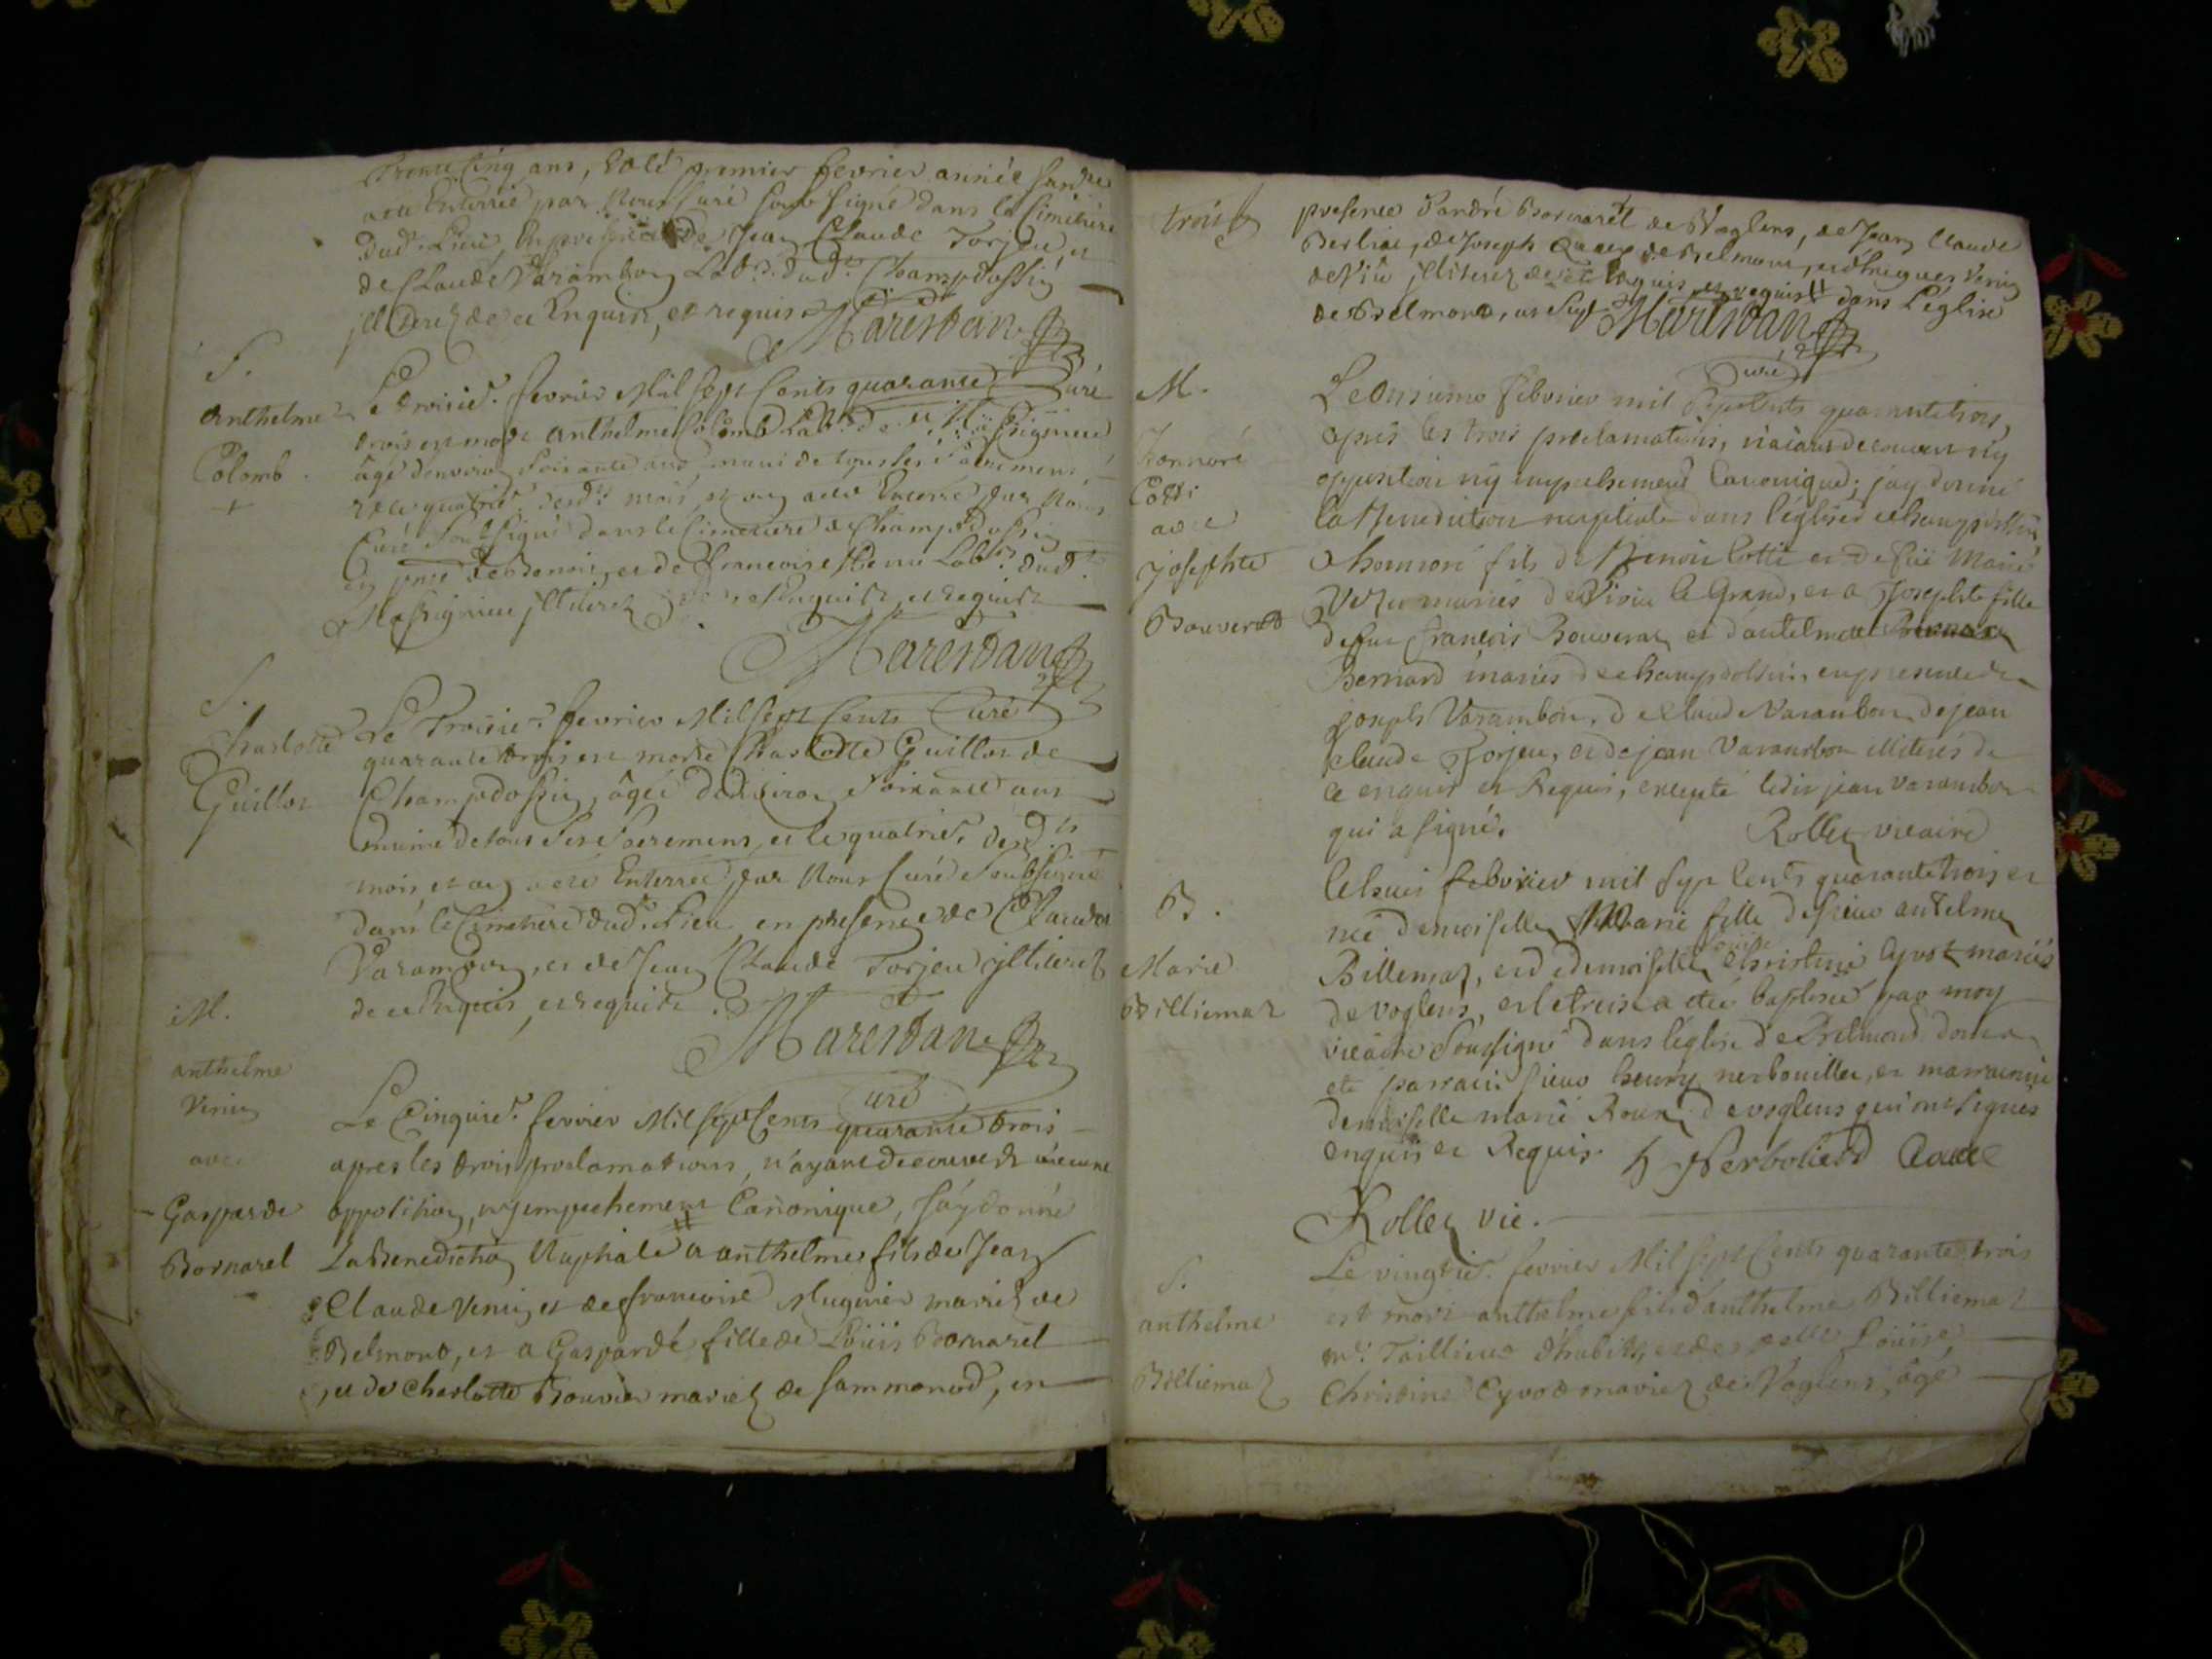 Trente Cinq ans, et le premier fevrier année susd.e
a été Enterrée par Nous Curé soubsigné dans le Cimetiere
dud. Lieu, En presence de Jean Claude Torjeu, et
de Claude Varambon Lab.rs dud. Champdossin
jlliterez de ce Enquis, et requis. Marestan
Curé
S.
Anthelme
Colomb.
Le troisie. fevrier Mil sept Cents quarante
trois est mort anthelme Colomb Lab.r de Massignieu
âgé denviron soixante ans muni de tous les sacremens
et le quatrie. desd.ts mois, et an a été Enterré par Nous
Curé soubsigné dans le Cimetiere de Champdossin
en pnce de Benoit, et de francois Lab.rs dud.
Massignieu jlliterez de ce Enquis, et requis
Marestan
Curé
S.
Charlotte
Guillot
Le Troisie. fevrier Mil sept Cents
quarante trois est morte Charlotte Guillot de
Champdossin, âgée denviron soixante ans
munie de tous ses sacremens, et le quatrie. desd.ts
mois, et an a été Enterrée par Nous Curé soubsigné
dans le Cimetiere dud. Lieu en presence de Claude
Varambon, et de Jean Claude Torjeu jlliterez
de ce Enquis, et requis.
Marestan
Curé
M.
anthelme
Venin
avec
Gasparde
Bornarel
Le Cinquie. fevrier Mil sept Cents quarante trois
apres les trois proclamations, n'ayant decouvert aucune
opposition, ny empechement Canonique, j'ay donné
La Benediction Nuptiale # a anthelme fils de Jean
Claude Venin, et de francoise Mugnier mariez de
Belmont, et a Gasparde fille de Loüis Bornarel
et de Charlotte Bouvier mariez de sammonod, en
trois
presence d'andré Bornarel de Voglens, de Jean Claude
Berlie, de Joseph de Belmont, et d'hugues Venin
de Viu jlliterez de ce Enquis, et requis # dans L'église
de Belmont, Marestan
Curé
M.
Honnoré
Cotti
avec
Josephte
Bouverat
Le onsieme febvrier mil sept cents quarante trois,
apres les trois proclamations, n'aiant decouvert ny
opposition ny empechement Canonique; j'ay donné
la Benediction nuptiale dans l'église de champdossin
a honnoré fils de Benoit Cotti et de füe Marie
mariés de Virieu le Grand, et a Josephte fille
de feu francois Bouverat et d'antelmette
Bernard mariés de champdossin, en presence de
joseph Varambon, de Claude Varambon, de jean
claude Torjeu, et de jean Varambon illiterés de
ce enquis et Requis, excepté ledit jean varambon
qui a signé. Rollet vicaire
B.
Marie
Billiemaz
Le huit febvrier mil sept cents quarante trois est
née demoiselle Marie fille de sieur antelme
Billemaz, et de demoiselle Louise Christine Cyvot mariés
de voglens, et le treise a été baptisée par moy
vicaire soussigné dans léglise de Belmont dont a
été parrain sieur henry nerbouillet, et marraine
demoiselle marie Roux de voglens qui ont signés
enquis et Requis. h Nerbolierd
Rollet vic.
S.
anthelme
Billiemaz
Le vingtie. fevrier Mil sept Cents quarante trois
est mort anthelme fils d'anthelme Billiemaz
m.e Taillieur d'habits, et de Loüise,
Christine Cyvod mariez de Voglens, âgé